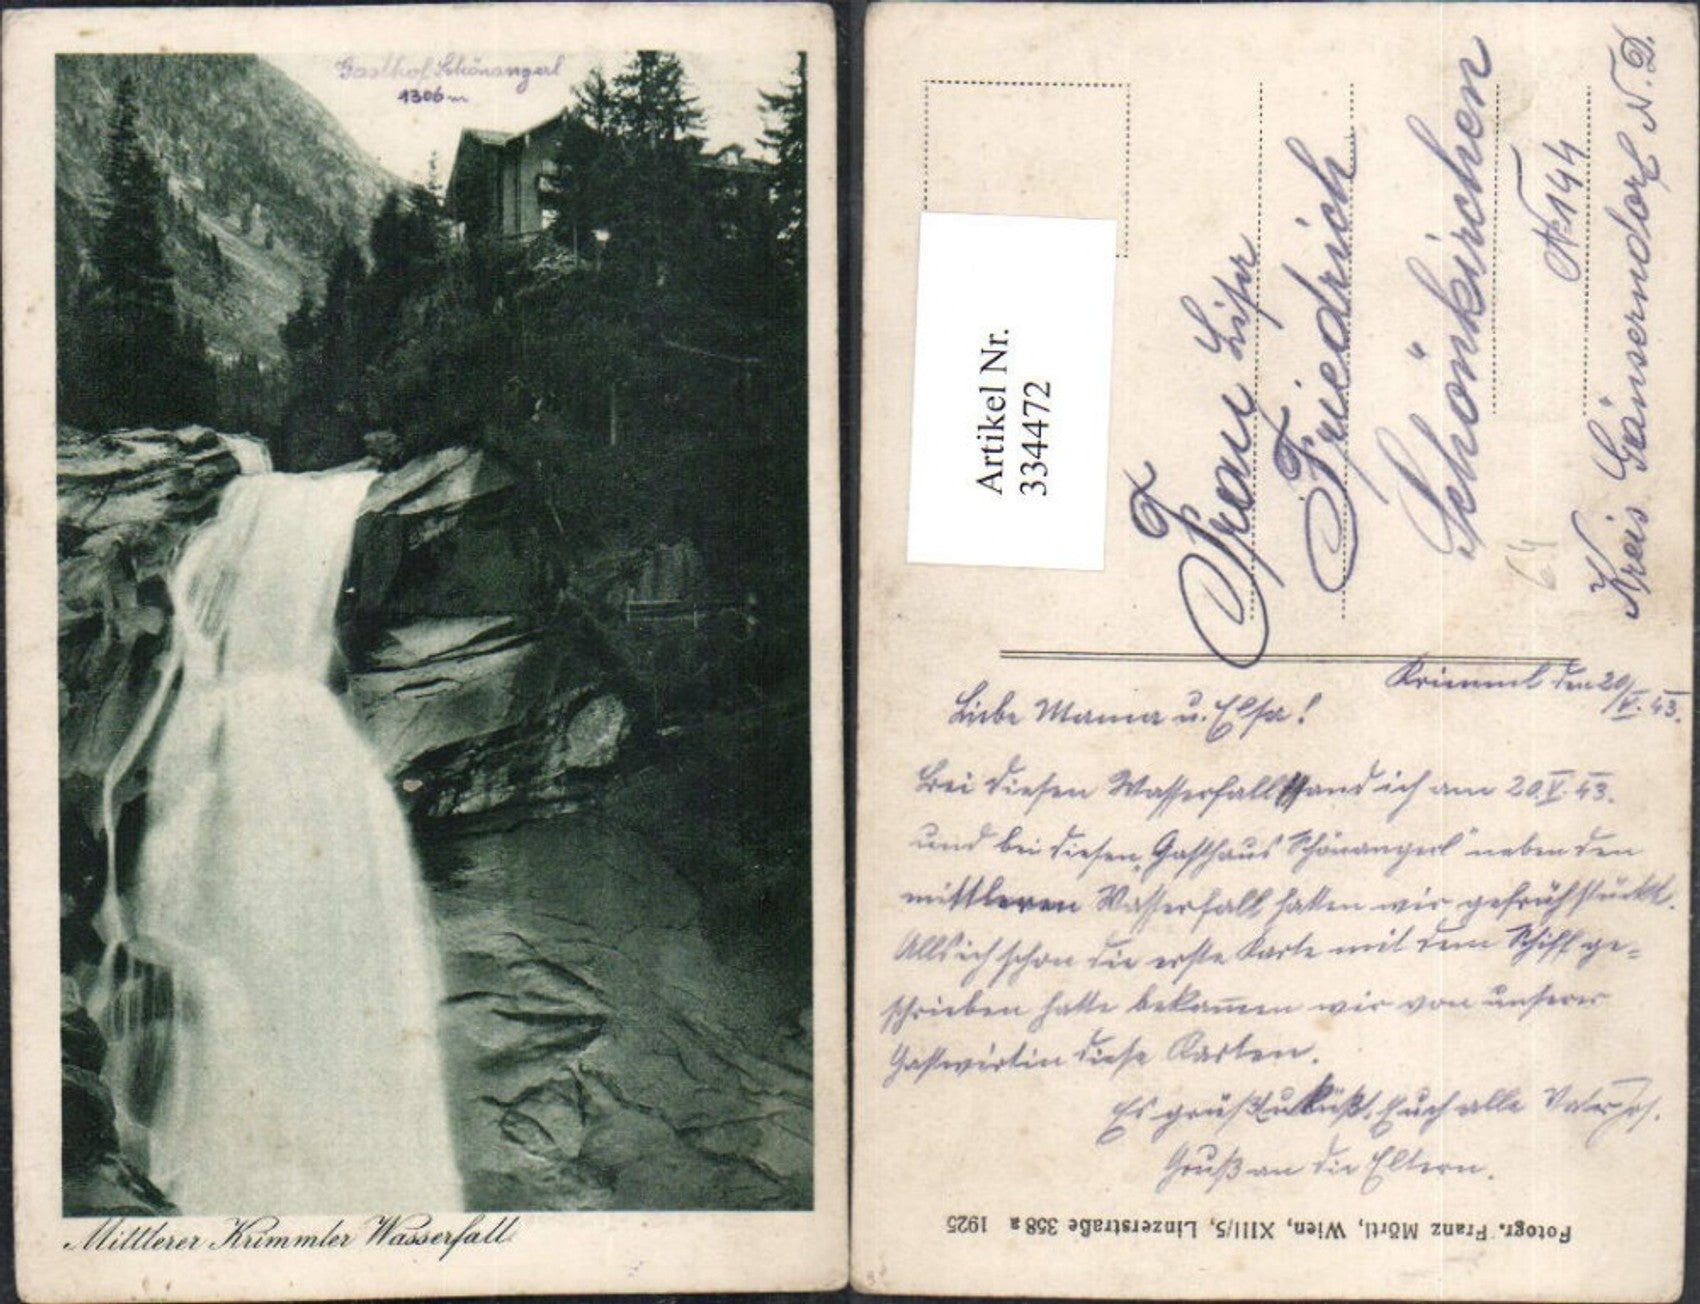 Gasthof Schönangerl
1306 m
Mittlerer Krimmler Wasserfall
Artikel Nr.
334472
Frau
Friedrich
Schönkirchen
Nr 144
Kreis Gänserndorf N.D.
64
Krimml den 20/V. 43.
Liebe Mama u. Elsa!
Bei diesen Wasserfall stand ich am 20.V.43.
und bei diesen „Gasthaus Schönangerl" neben den
mittleren Wasserfall hatten wir gefrühstückt.
Alls ich schon die erste Karte mit dem Schiff ge=
schrieben hatte bekamen wir von unserer
Gastwirtin diese Karten.
Es grüßt u küßt Euch alle Vater
Gruß an die Eltern.
Fotogr. Franz Mörtl, Wien, XIII/5, Linzerstraße 358 a 1925